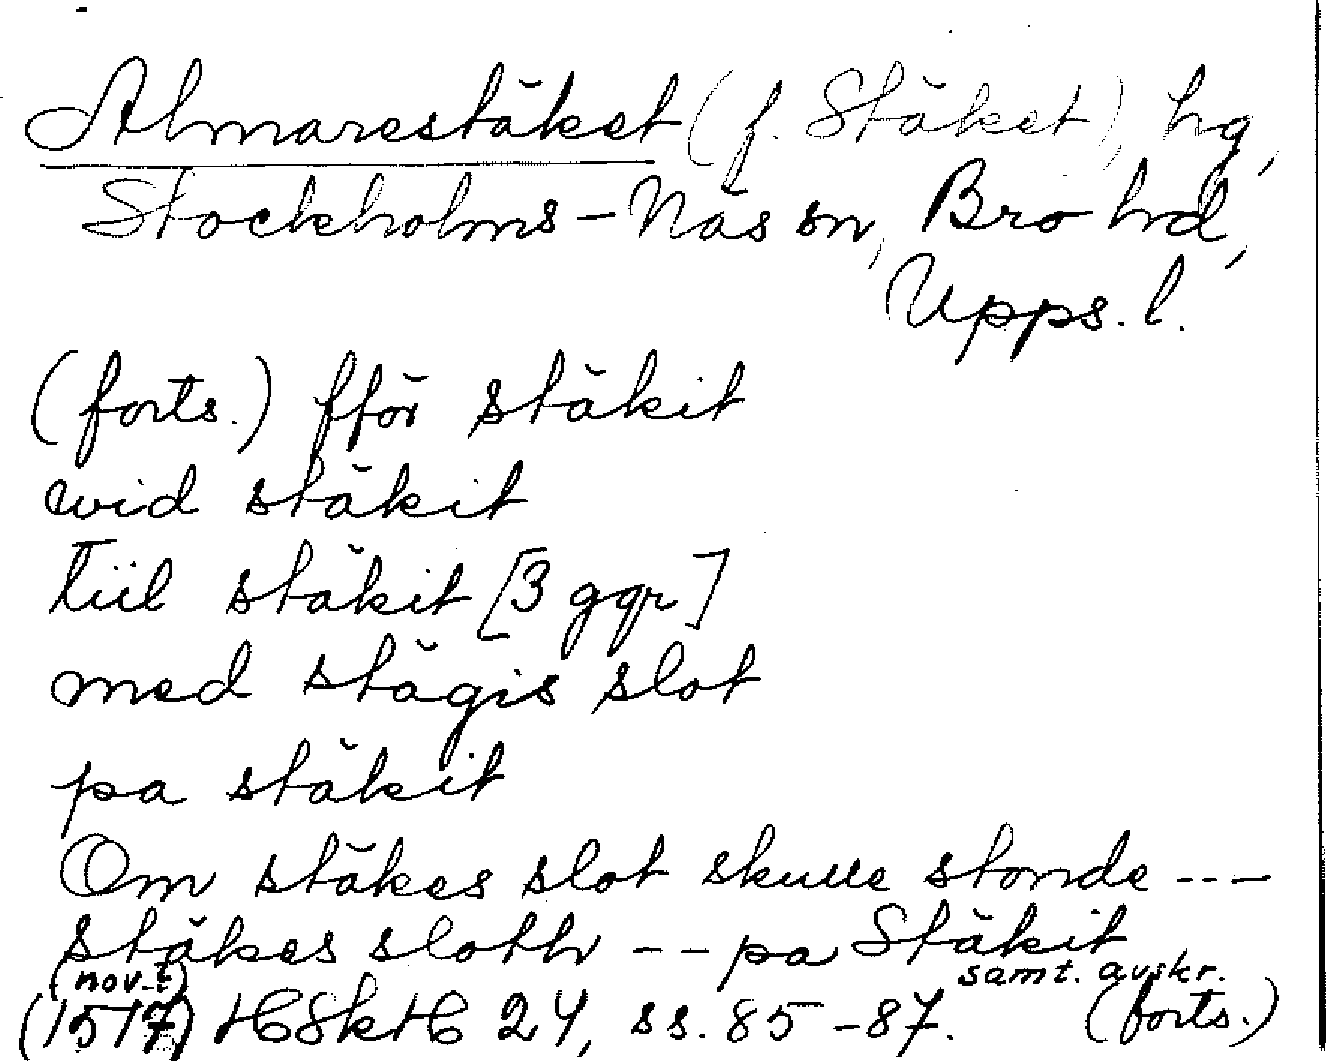 Almarestäket (f. Stäket) hg,
Stockholms-Näs sn, Bro hd,
Upps. l.
(forts.) fför stäkit
wid stäkit
tiil stäkit [3 ggr]
med stägis slot
pa stäkit
Om stäkes slot skulle stonde ---
stäkes sloth -- pa Stäkit
(nov.t) samt. avskr.
(1517) HSkH 24, ss. 85-87. (forts.)